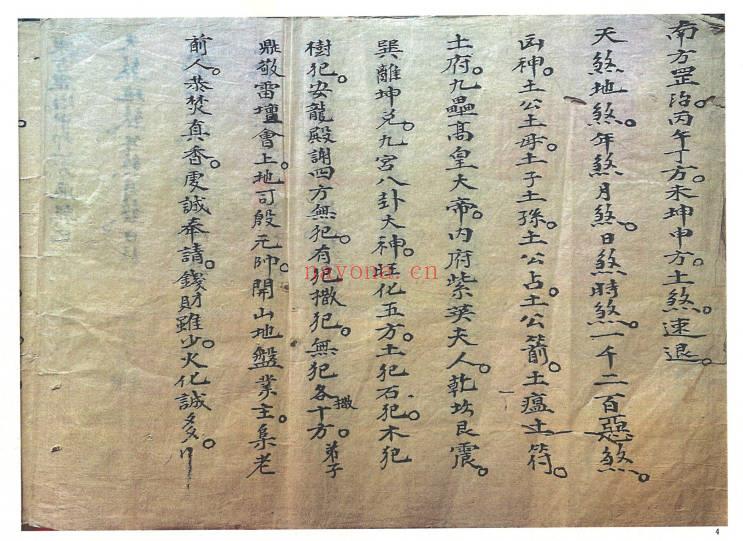 南方罡治丙午丁方。未坤申方。土煞速退。
天煞地煞。年煞月煞。日煞時煞。一千二百惡煞。
凶神。土公土母。土子土孫。土公占。土公箭。土瘟土符。
土府。九壘高皇大帝。內府紫英夫人。乾坎艮震。
巽離坤兌。九宮八卦大神。旺化五方。土犯石犯。木犯
樹犯。安龍殿謝四方無犯。有犯撒犯。無犯各十方。撒弟子
鼎敬雷壇會上。地司殷元帥。開山地盤業主。集老
前人。恭焚真香。虔誠奉請。錢財雖少。火化誠多。
nayona.cn
4